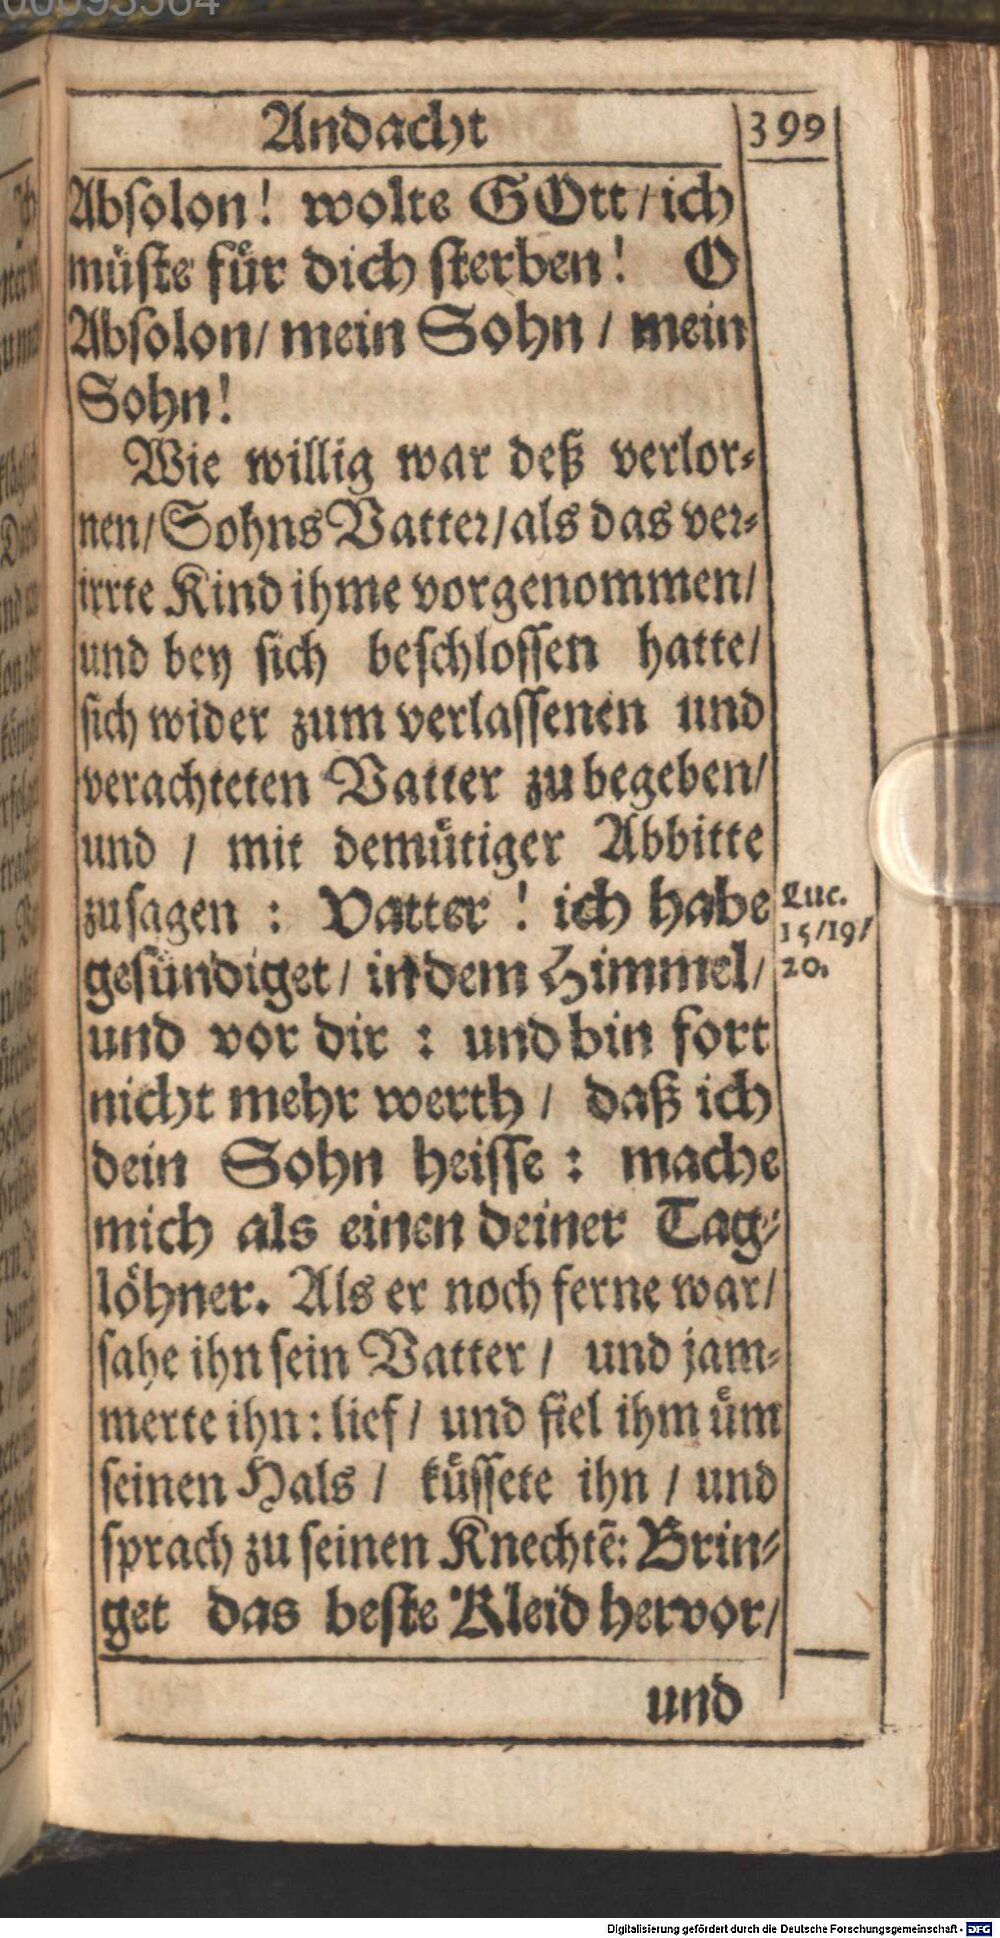 00093564
Andacht
399
Absolon! wolte GOtt/ich
müste für dich sterben! O
Absolon/ mein Sohn / mein
Sohn!
Wie willig war deß verlor-
nen/Sohns Vatter/als das ver-
irrte Kind ihme vorgenommen/
und bey sich beschlossen hatte/
sich wider zum verlassenen und
verachteten Vatter zu begeben/
und / mit demütiger Abbitte
zusagen : Vatter ! ich habe
gesündiget/ in dem Himmel/
und vor dir : und bin fort
nicht mehr werth / daß ich
dein Sohn heisse : mache
mich als einen deiner Tag-
löhner. Als er noch ferne war/
sahe ihn sein Vatter / und jam-
merte ihn: lief/ und fiel ihm üm
seinen Hals / küssete ihn / und
sprach zu seinen Knechtē: Brin-
get das beste Kleid hervor/
Luc.
15/19/
20.
und
Digitalisierung gefördert durch die Deutsche Forschungsgemeinschaft - DFG